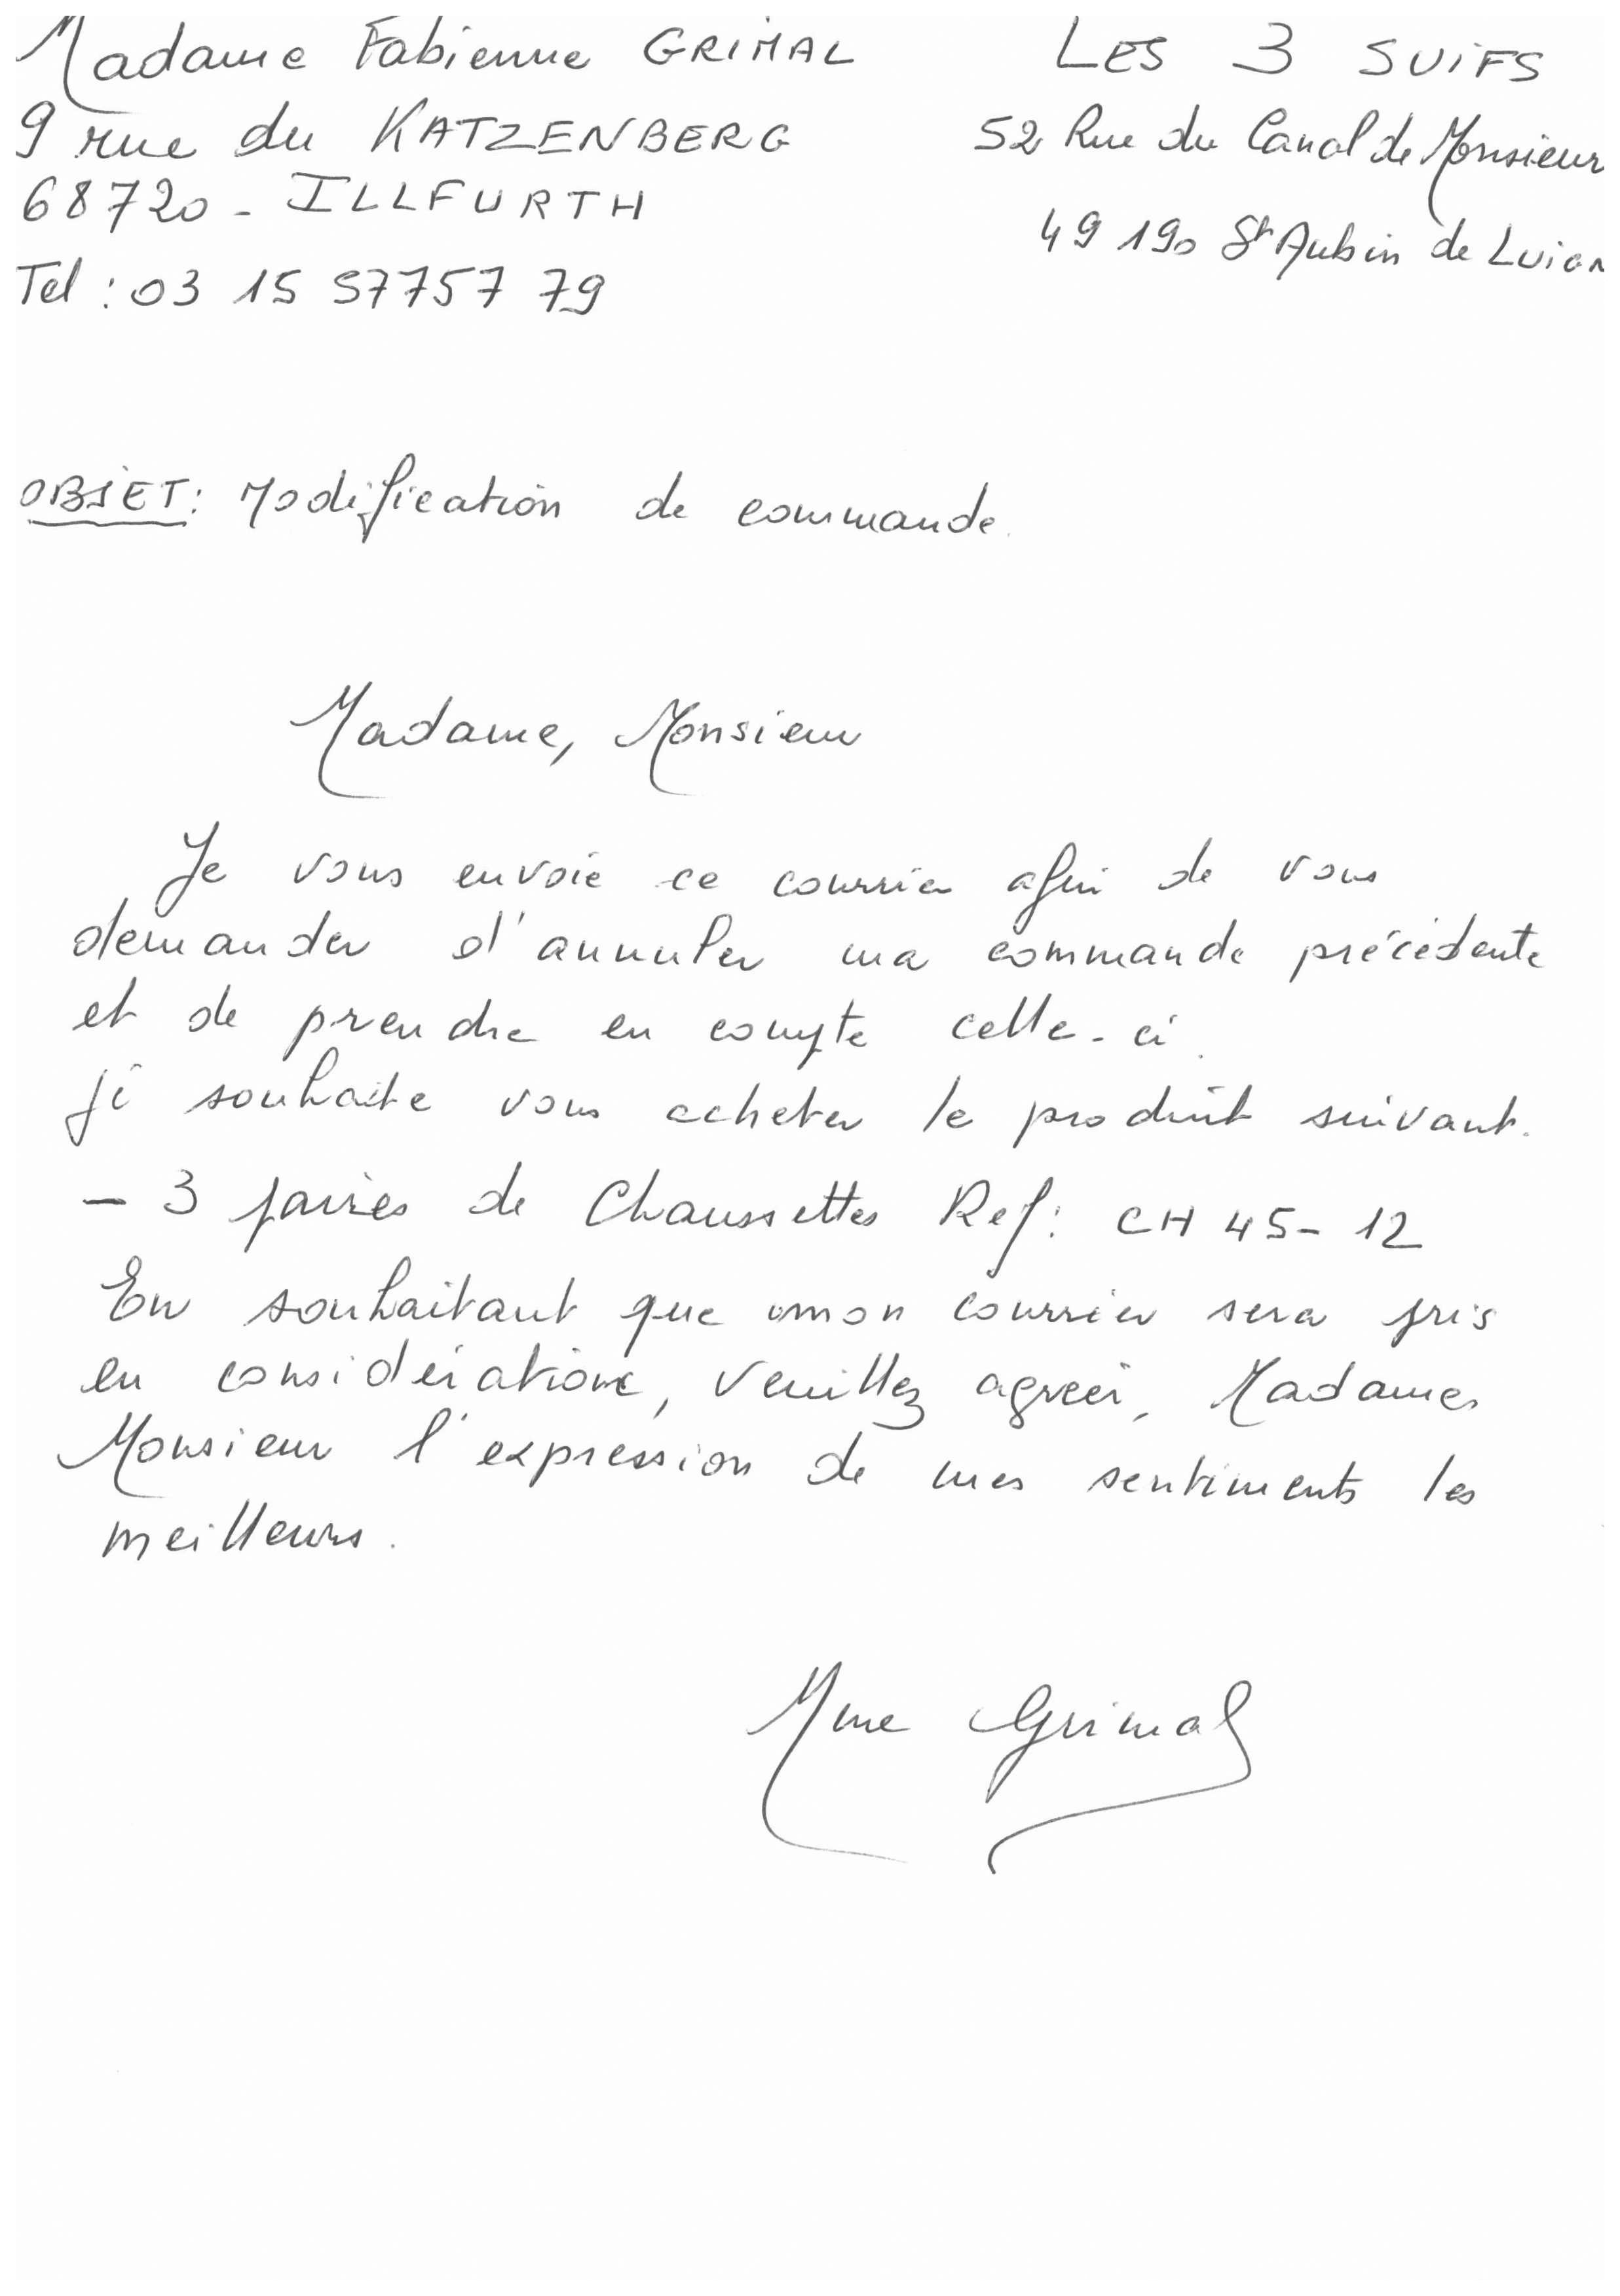 Madame Fabienne GRIMAL
9 rue du KATZENBERG
68720 - ILLFURTH
Tel : 03 15 577757 79
LES 3 SUiFS
52 Rue du Canal de Monsieur
49 190 St Aubin de Luign
OBJET : Modification de commande.
Madame, Monsieur
Je vous envoie ce courrier afin de vous
demander d'annuler ma commande précédente
et de prendre en compte celle-ci.
Je souhaite vous acheter le produit suivant.
- 3 paires de Chaussettes Ref : CH 45-12
En souhaitant que mon courrier sera pris
en considération, veuillez agréer, Madame,
Monsieur l'expression de mes sentiments les
meilleurs.
Mme Grimal